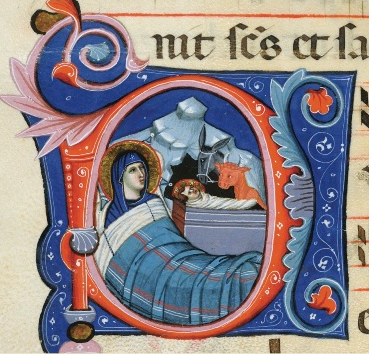 nit sc̄s et sa